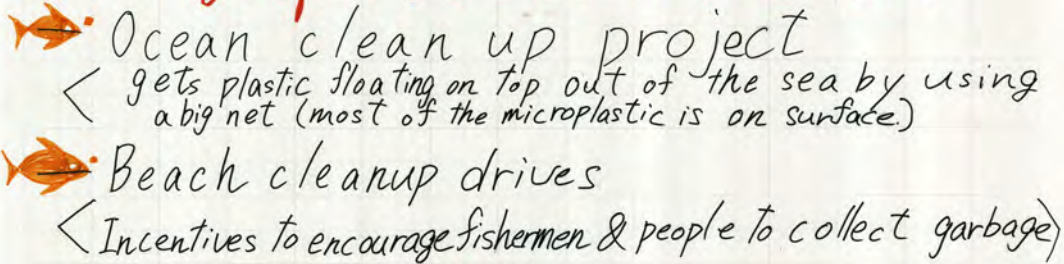 Ocean clean up project
< gets plastic floating on top out of the sea by using
a big net (most of the microplastic is on surface.)
Beach cleanup drives
< Incentives to encourage fishermen & people to collect garbage)